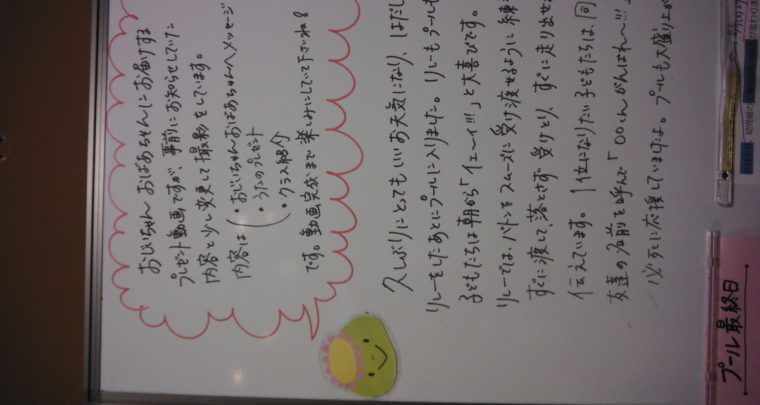 おじいちゃん おばあちゃんにお届けする
プレゼント動画ですが、事前にお知らせしていた
内容と少し変更して撮影をしています。
内容は
・おじいちゃんおばあちゃんへメッセージ
・うたのプレゼント
・クラス紹介
です。動画完成まで楽しみにしていて下さいね?
久しぶりにとてもいいお天気になり、はだし
リレーをしたあとにプールに入りました。リレーもプールも
子どもたちは朝から「イェーイ!!!」と大喜びです。
リレーでは、バトンをスムーズに受け渡せるように練
すぐに渡して、落とさず受けとり、すぐに走り出せる
伝えています。1位になりたい子どもたちは、同
友達の名前を呼んで「○○くんがんばれ〜!!!」
必死に応援していましたよ。プールも大盛り上が
プール最終日